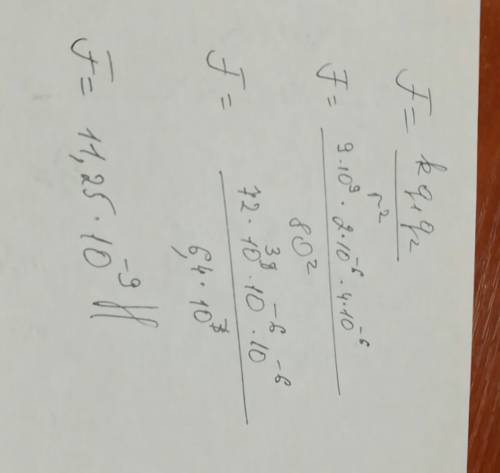 F = kq₁q₂ / r²
F = 9·10⁹ · 2·10⁻⁶ · 4·10⁻⁶ / 80²
F = 72·10³·10⁻⁶·10⁻⁶ / 6,4·10
F = 11,25·10⁻⁹ Н